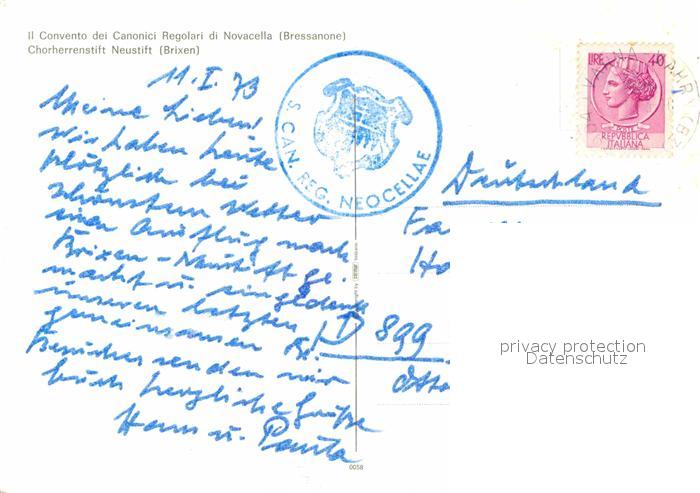 Il Convento dei Canonici Regolari di Novacella (Bressanone)
Chorherrenstift Neustift (Brixen)
11.I.73
Meine Lieben!
Wir haben heute
plötzlich bei
schönstem Wetter
einen Ausflug nach
Brixen-Neustift ge-
macht u. eingedenk
unseres letzten
gemeinsamen
Besuches senden wir
Euch herzliche Grüße
Hans u.
S. CAN. REG. NEOCELLAE
LIRE 40
POSTE
REPVBBLICA
ITALIANA
Deutschland
Fa
Ha
D 899
Otto
privacy protection
Datenschutz
0058